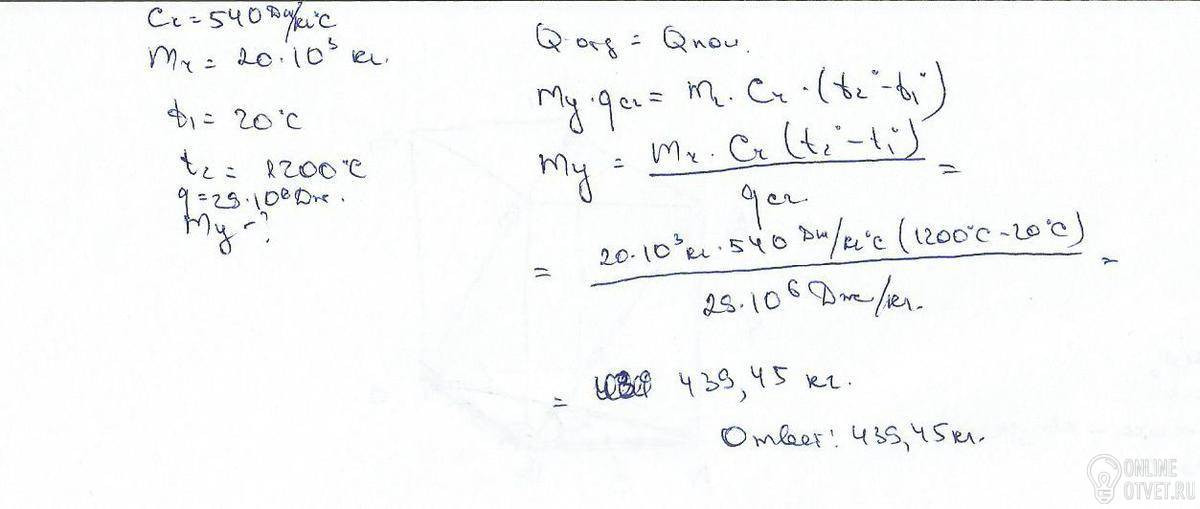 Cг = 540 Дж/кг°C
Mг = 20·10³ кг.
t₁ = 20°C
t₂ = 1200°C
q = 29·10⁶ Дж.
My - ?
Q отд = Q пол.
My · q сг = mг · Cг · (t₂° - t₁°)
My = Mг · Cг (t₂° - t₁°) / q сг =
= 20·10³ кг · 540 Дж/кг°C (1200°C - 20°C) / 29·10⁶ Дж/кг. =
= 439,45 кг.
Ответ: 439,45 кг.
ONLINE
OTVET.RU